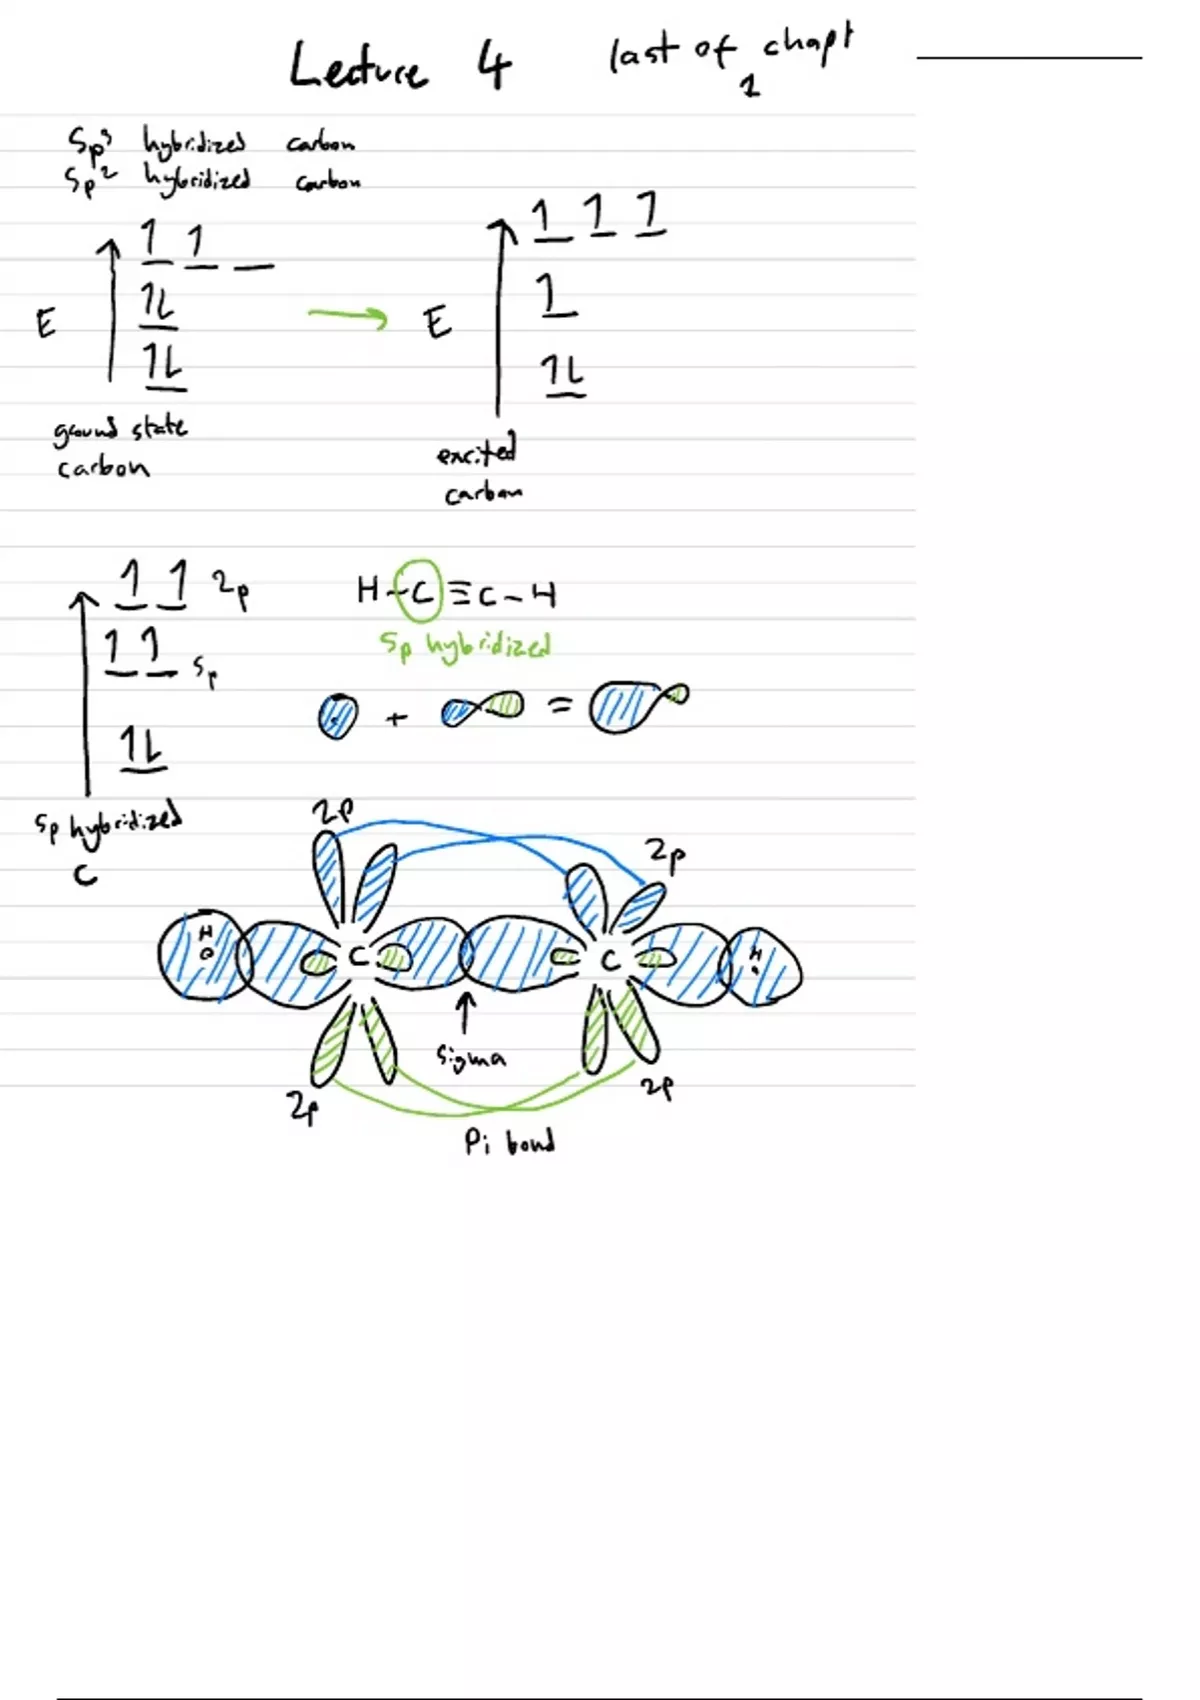 Lecture 4 last of chapt 1
Sp³ hybridized carbon
Sp² hybridized carbon
1 1
1 1 1
1L
1
E
E
1L
1L
ground state
carbon
excited
carbon
1 1 2p
H-C≡C-H
1 1 sp
Sp hybridized
+ =
1L
Sp hybridized
C
2p
2p
H
C
C
H
sigma
2p
2p
Pi bond